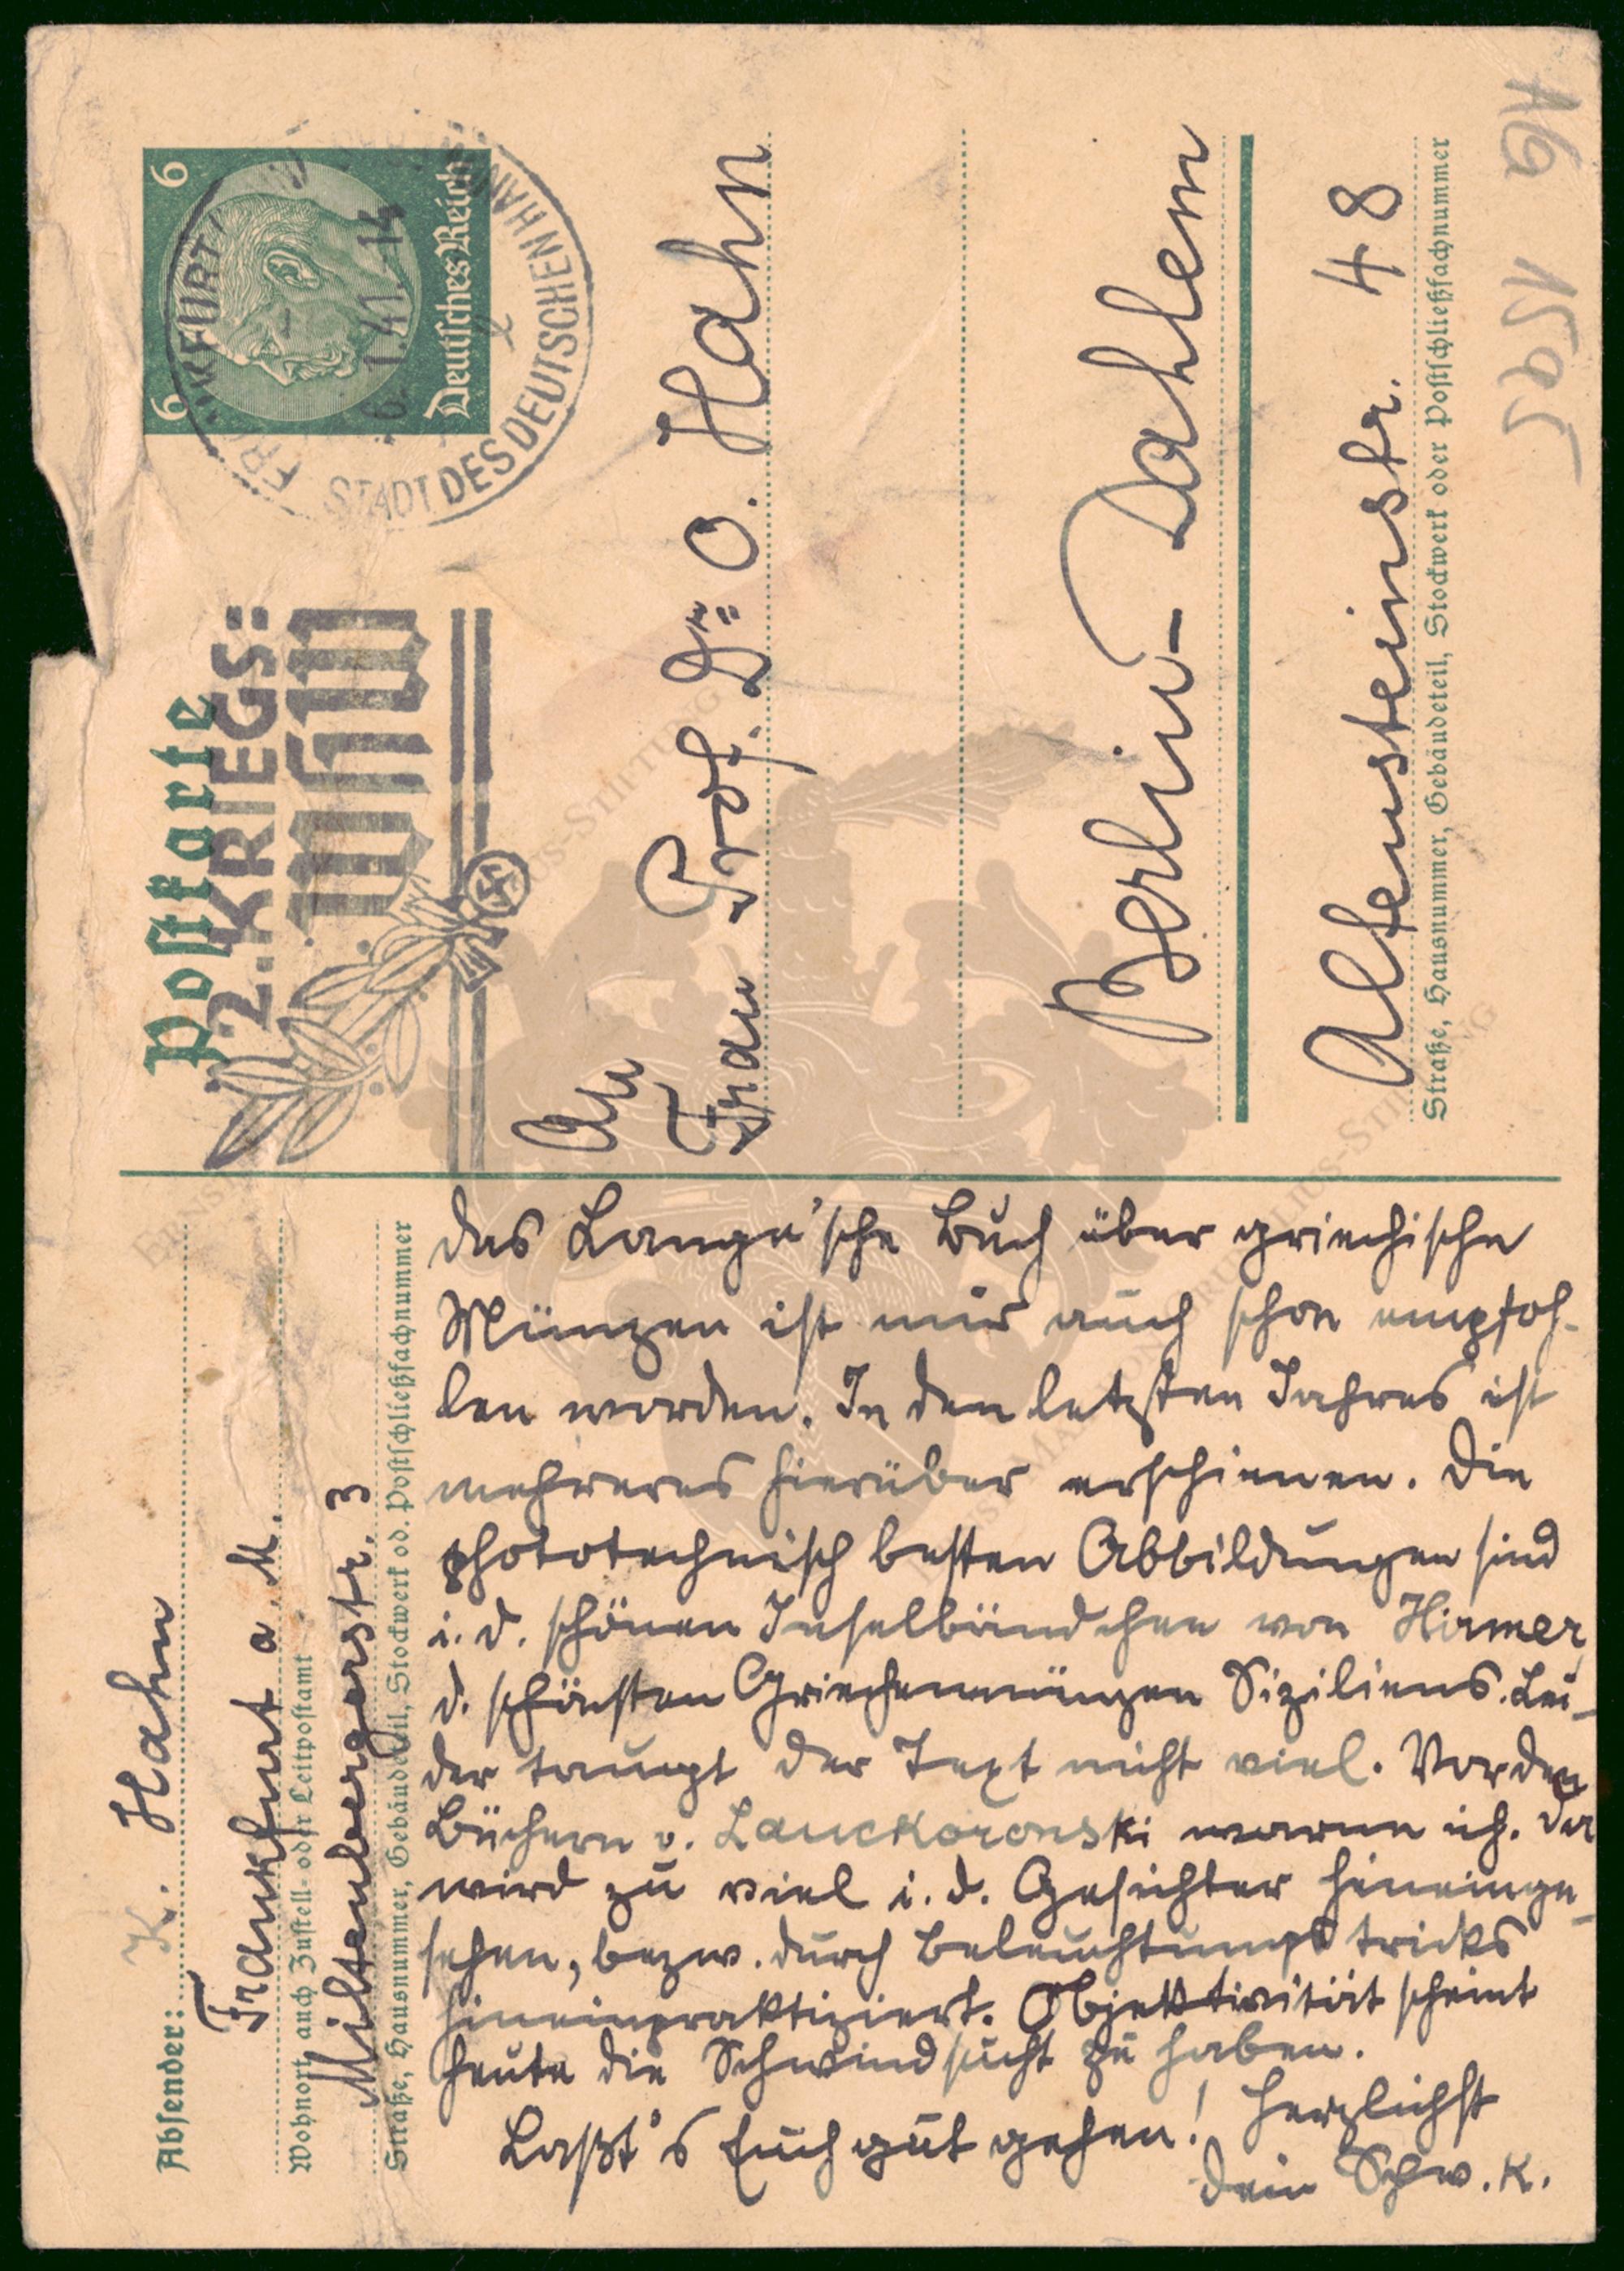 Postkarte
2. KRIEGS:
WHW
6 6
Deutsches Reich
FRANKFURT
6.1.41.-14
STADT DES DEUTSCHEN HAN
An
Frau Prof. Dr. O. Hahn
Berlin-Dahlem
Altensteinstr. 48
Straße, Hausnummer, Gebäudeteil, Stockwerk oder Postschließfachnummer
Absender: K. Hahn
Frankfurt a. M.
Wohnort, auch Zustell- oder Leitpostamt
Miltenbergerstr. 3
Straße, Hausnummer, Gebäudeteil, Stockwerk od. Postschließfachnummer
Das Lange'sche Buch über griechische
Münzen ist mir auch schon empfoh-
len worden. In den letzten Jahren ist
mehreres hierüber erschienen. Die
phototechnisch besten Abbildungen sind
i. d. schönen Inselbändchen von Hirmer,
d. schönsten Griechenmünzen Siziliens. Lei-
der taugt der Text nicht viel. Vor den
Büchern v. Lanckoronski warne ich. Da
wird zu viel i. d. Gesichter hineinge-
sehen, bezw. durch Beleuchtungstricks
hineinpraktiziert. Objektivität scheint
heute die Schwindsucht zu haben.
Laßt's Euch gut gehen! Herzlichst
Dein Schw. K.
ERNST MARTIN CORNELIUS-STIFTUNG